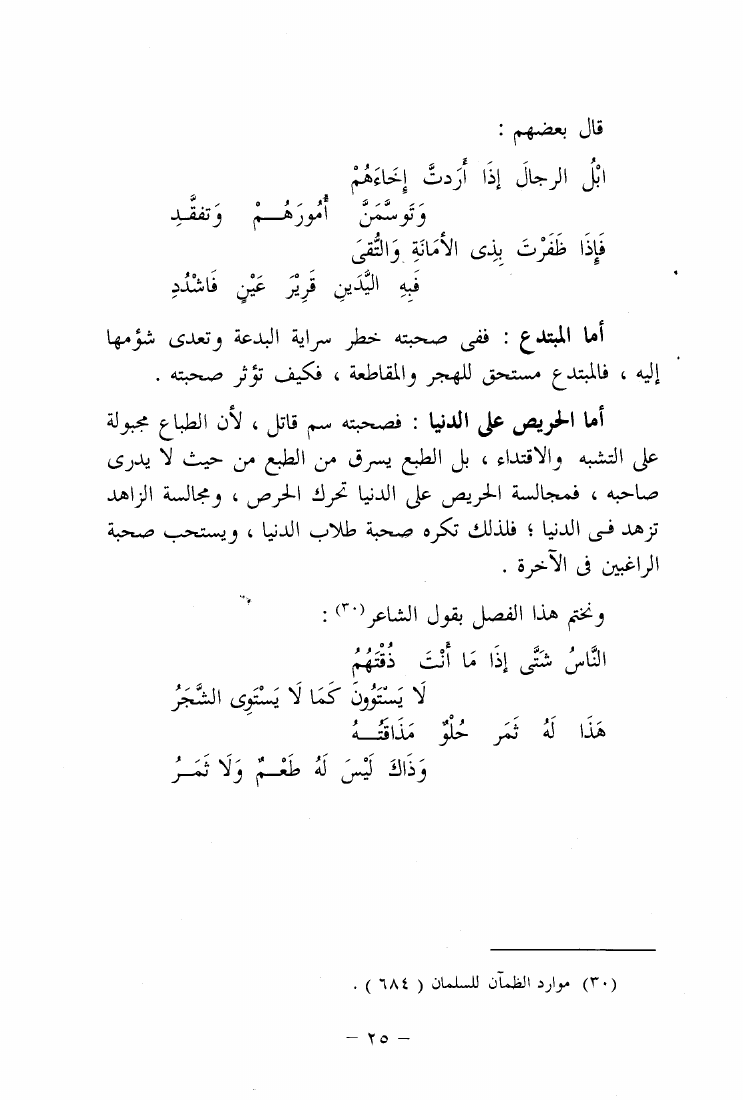 قال بعضهم :
ابْلُ الرجالَ إِذَا أَردتَّ إِخَاءَهُمْ
وَتَوسَّمَنَّ أُمُورَهُـــمْ وَتفقَّـدِ
فَإِذَا ظَفَرْتَ بِذِى الأمَانَةِ وَالتُّقىَ
فَبِهِ الْيَدَينِ قَرِيْرَ عَيْنٍ فَاشْدُدِ
أما المبتدع : ففى صحبته خطر سراية البدعة وتعدى شؤمها
إليه ، فالمبتدع مستحق للهجر والمقاطعة ، فكيف تؤثر صحبته .
أما الحريص على الدنيا : فصحبته سم قاتل ، لأن الطباع مجبولة
على التشبه والاقتداء ، بل الطبع يسرق من الطبع من حيث لا يدرى
صاحبه ، فمجالسة الحريص على الدنيا تحرك الحرص ، ومجالسة الزاهد
تزهد فى الدنيا ؛ فلذلك تكره صحبة طلاب الدنيا ، ويستحب صحبة
الراغبين فى الآخرة .
ونختم هذا الفصل بقول الشاعر(٣٠) :
النَّاسُ شَتَّى إِذَا مَا أَنْتَ ذُقْتَهُمُ
لَا يَسْتَوُونَ كَمَا لَا يَسْتَوِى الشَّجَرُ
هَذَا لَهُ ثَمَر حُلْوٌ مَذَاقَتُـــهُ
وَذَاكَ لَيْسَ لَهُ طَعْـــمٌ وَلَا ثَمَــرُ
(٣٠) موارد الظمآن للسلمان ( ٦٨٤ ) .
— ٢٥ —